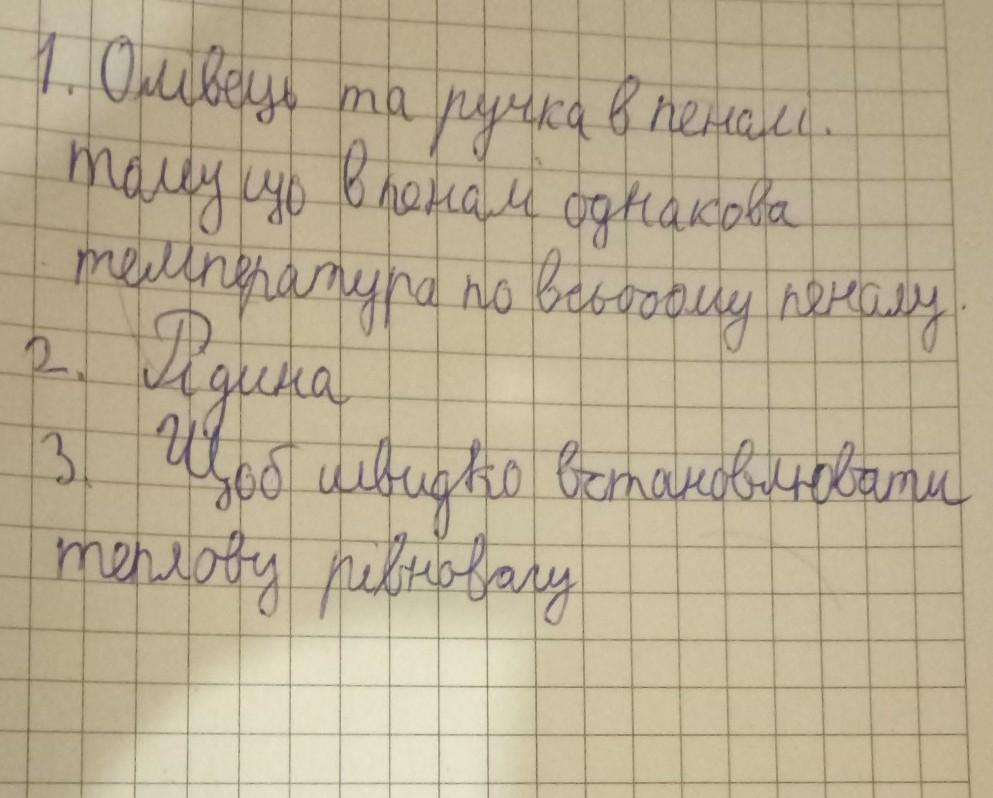 1. Олівець та ручка в пеналі.
тому що в пеналі однакова
температура по всьоому пеналу.
2. Рідина
3. Щоб швидко встановлювати
теплову рівновагу